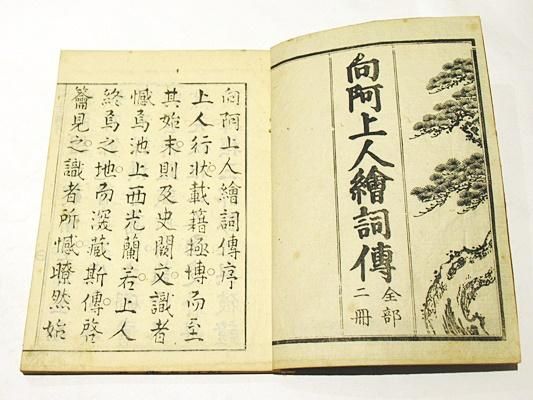 向阿上人繪詞傳
全部
二冊
向阿上人繪詞傳序
上人行狀載籍極博而至
其始末則及史闕文識者
憾焉池上西光蘭若上人
終焉之地而深藏斯傳啓
籥見之識者所憾瞭然始